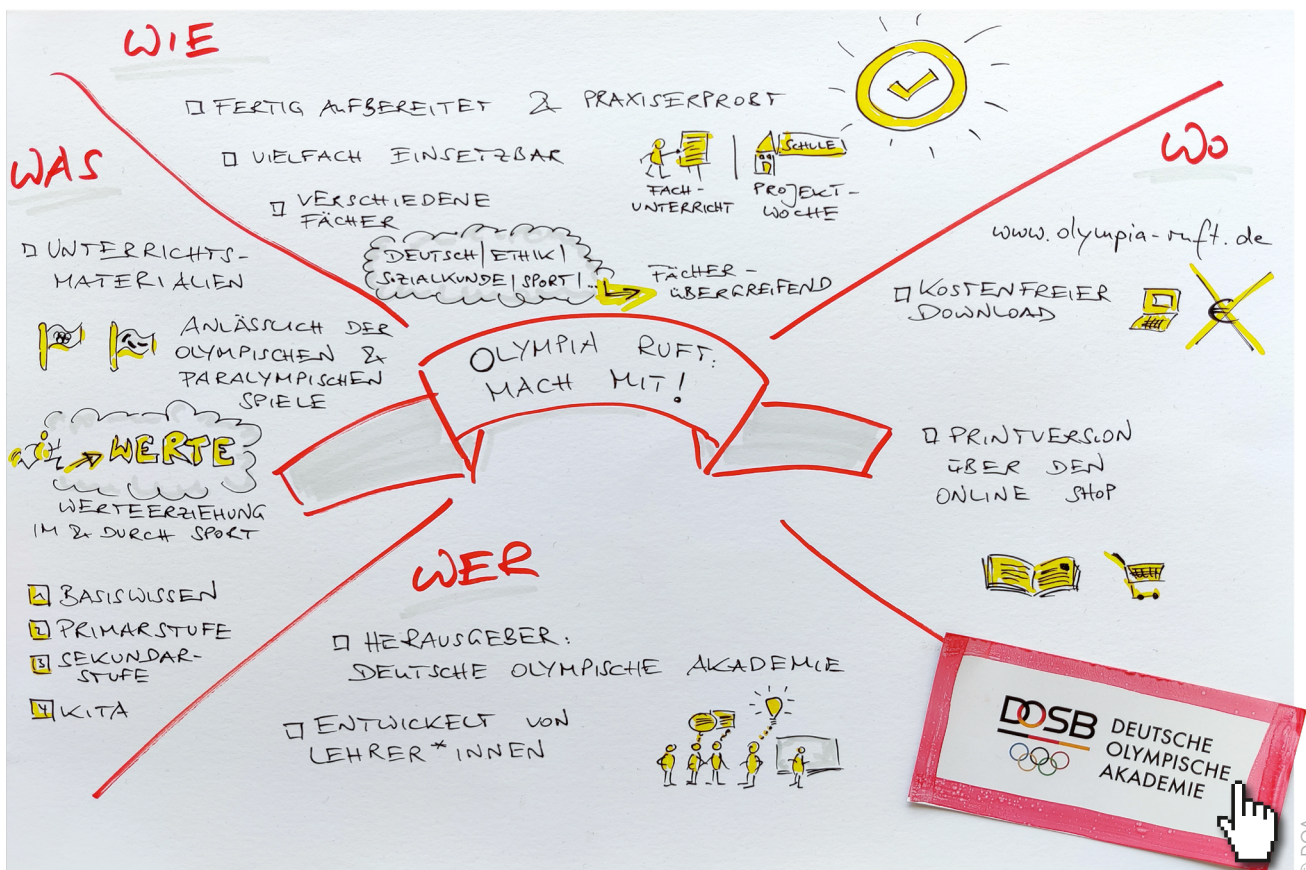 WIE
□ FERTIG AUFBEREITET & PRAXISERPROBT
□ VIELFACH EINSETZBAR
FACH-
UNTERRICHT
SCHULE
PROJEKT-
WOCHE
□ VERSCHIEDENE
FÄCHER
DEUTSCH | ETHIK |
SIZIALKUNDE | SPORT | ...
FÄCHER-
ÜBERGREIFEND
WAS
□ UNTERRICHTS-
MATERIALIEN
ANLÄSSLICH DER
OLYMPISCHEN &
PARALYMPISCHEN
SPIELE
WERTE
WERTEERZIEHUNG
IM & DURCH SPORT
1 BASISWISSEN
2 PRIMARSTUFE
3 SEKUNDAR-
STUFE
4 KITA
OLYMPIA RUFT:
MACH MIT!
WO
www.olympia-ruft.de
□ KOSTENFREIER
DOWNLOAD
€
□ PRINTVERSION
ÜBER DEN
ONLINE SHOP
WER
□ HERAUSGEBER:
DEUTSCHE OLYMPISCHE AKADEMIE
□ ENTWICKELT VON
LEHRER*INNEN
DOSB
DEUTSCHE
OLYMPISCHE
AKADEMIE
© DOA